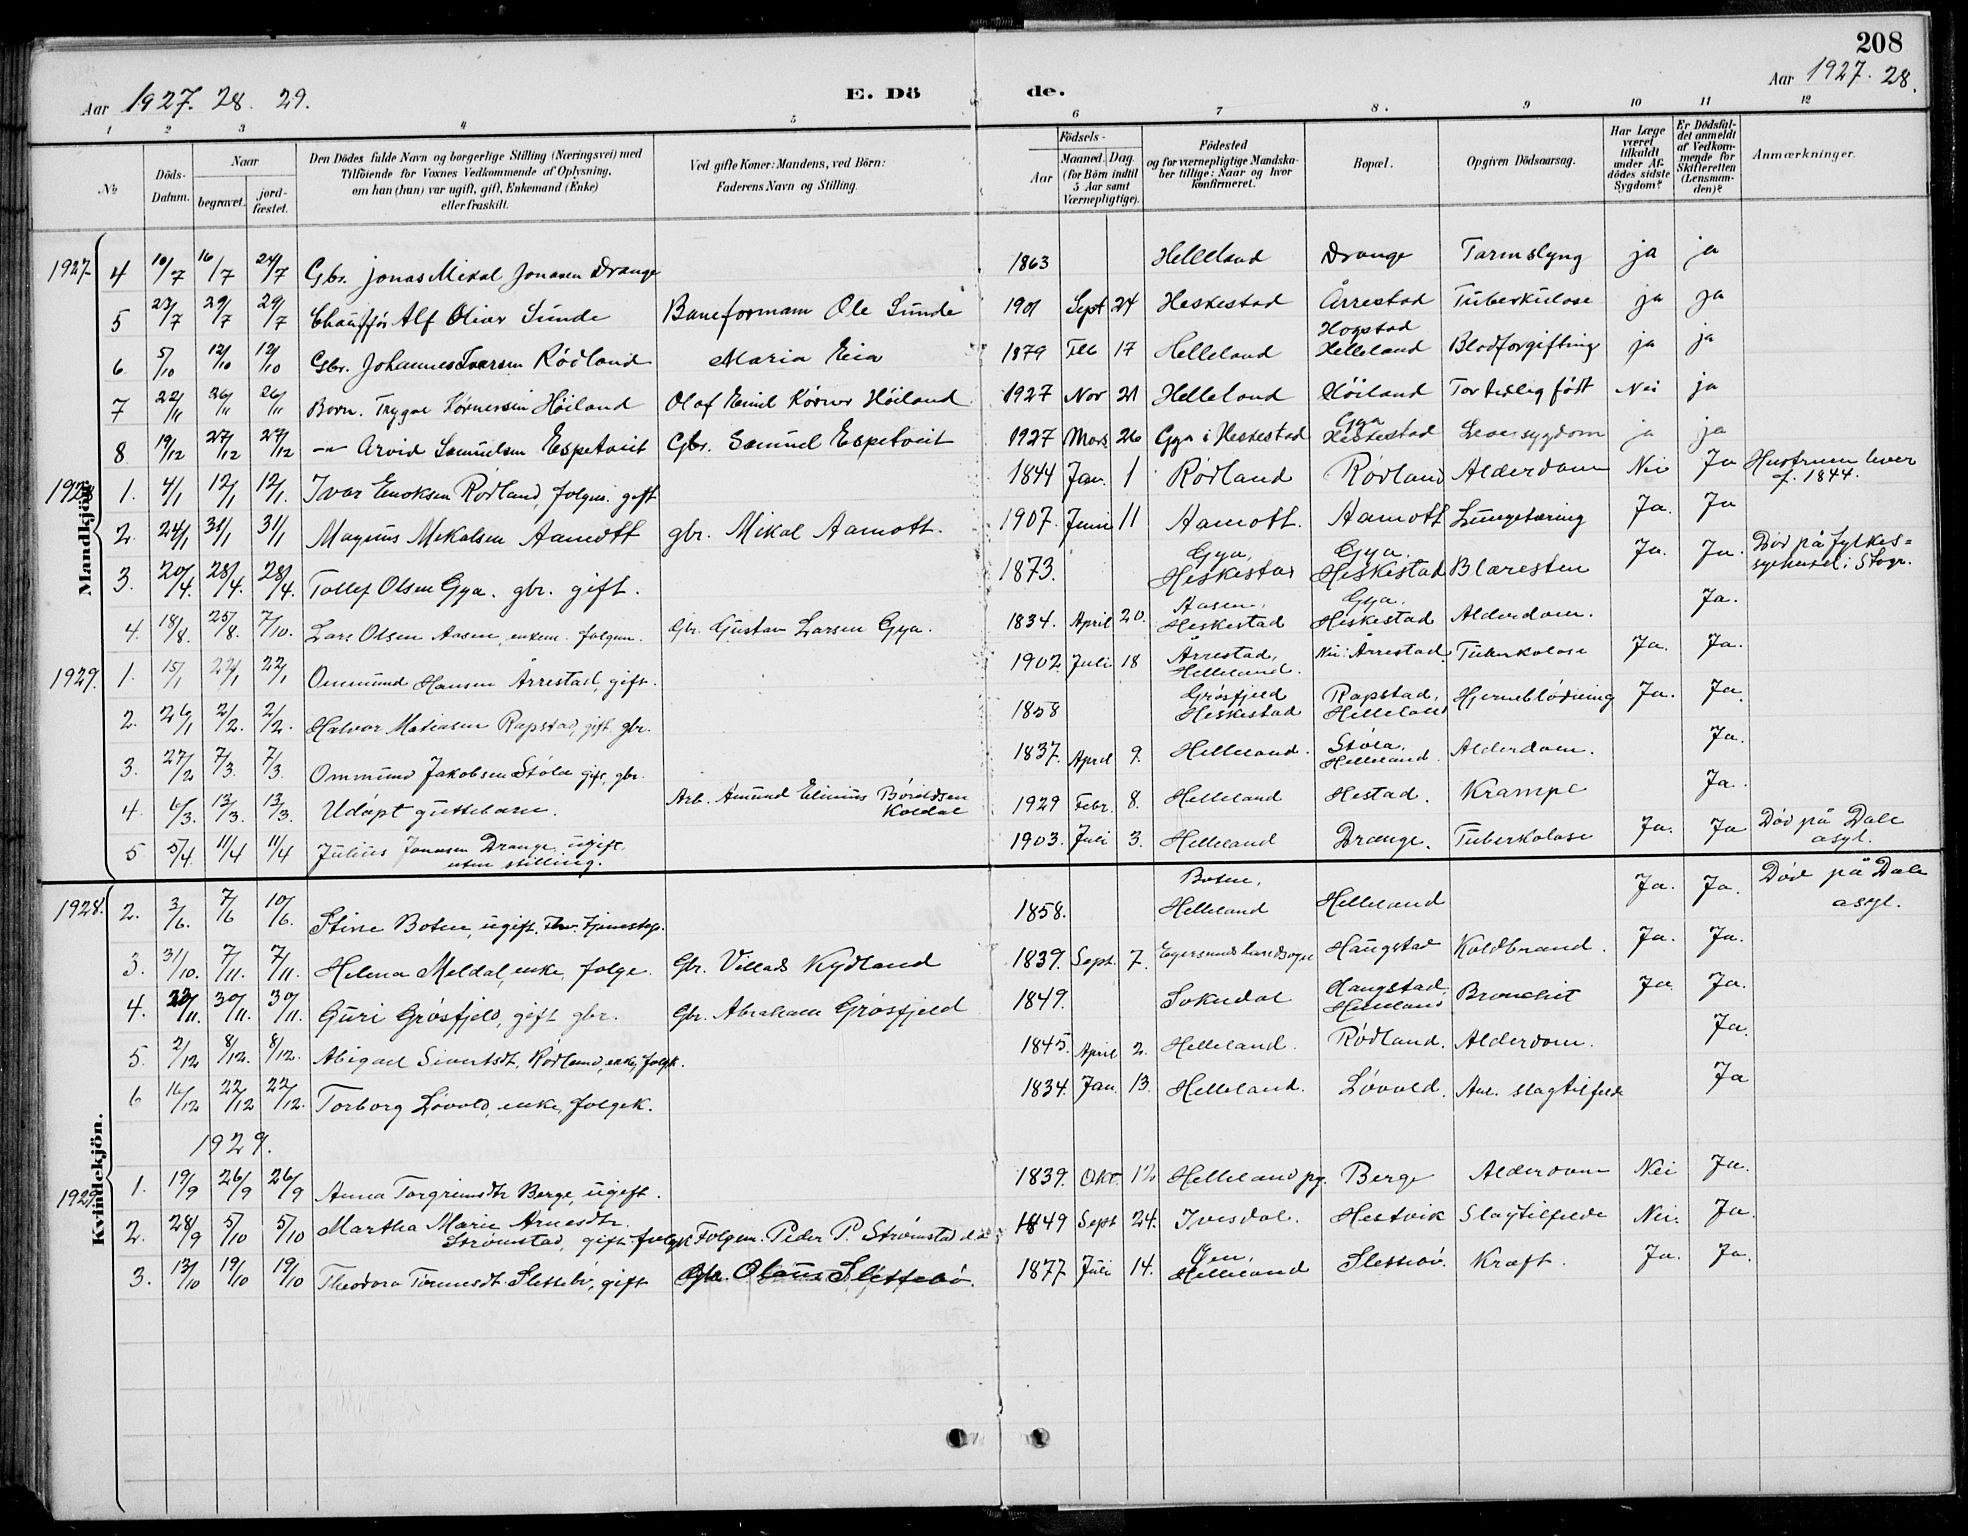 208
Aar 1927. 28. 29.
E. Dö
de.
Aar 1927. 28.
1 2 3 4 5 6 7 8. 9 10 11 12
№
Döds-
Datum.
Naar
begravet.
jord-
fæstet.
Den Dödes fulde Navn og borgerlige Stilling (Næringsvei) med
Tilföiende for Voxnes Vedkommende af Oplysning,
om han (hun) var ugift, gift, Enkemand (Enke)
eller fraskilt.
Ved gifte Koner: Mandens, ved Börn:
Faderens Navn og Stilling.
Födsels-
Aar
Maaned. Dag.
(for Börn indtil
5 Aar samt
Værnepligtige).
Födested
og for værnepligtige Mandska-
ber tillige: Naar og hvor
konfirmeret.
Bopæl.
Opgiven Dödsaarsag.
Har Læge
været
tilkaldt
under Af-
dödes sidste
Sygdom?
Er Dödsfal-
det anmeldt
af Vedkom-
mende for
Skifteretten
(Lensman-
den)?
Anmærkninger.
Mandkjön.
1927 4 10/7 16/7 24/7 Gbr. Jonas Mikal Jonasen Drange 1863 Helleland Drange Tarmslyng ja ja
5 23/7 29/7 29/7 Chauffør Alf Oliar Sunde Baneformann Ole Sunde 1901 Sept 24 Heskestad Årrestad Tuberkulose ja ja
6 5/10 12/10 12/10 Gbr. Johannes Ivarsen Rødland Maria Eia 1879 Feb 17 Helleland Hogstad Helleland Blodforgiftning ja ja
7 22/11 26/11 26/11 Barn. Trygve Kørnersen Höiland Olaf Emil Kørner Höiland 1927 Nov 21 Helleland Höiland For tidlig født Nei ja
8 19/12 27/12 27/12 -"- Arvid Samuelsen Espetveit Gbr. Samuel Espetveit 1927 Mars 26 Gya i Heskestad Gya Heskestad Leversygdom ja ja
1928 1. 4/1 12/1 12/1. Ivar Enoksen Rødland, folgm. gift 1844 Jan. 1 Rødland Rødland Alderdom Nei Ja Hustruen lever
f. 1844.
2. 24/1 31/1 31/1 Magnus Mikalsen Aamott gbr. Mikal Aamott. 1907. Juni 11 Aamott. Aamott Lungetæring Ja. Ja
3. 20/4. 28/4. 28/4. Tollef Olsen Gya. gbr. gift. 1873. Gya, Heskestad Gya. Heskestad Blæresten Ja. Ja. Død på fylkes=
sykehuset i Stvgr.
4. 18/8. 25/8. 7/10. Lars Olsen Aasen, enkem. folgm. Gbr. Gustav Larsen Gya. 1834. April 20. Aasen, Heskestad Gya. Heskestad Alderdom. Ja.
1929. 1. 15/1 22/1 22/1 Ommund Hansen Årrestad, gift. 1902 Juli 18 Årrestad, Helleland. Årrestad. Tuberkolose Ja. Ja.
2. 26/1 2/2. 2/2. Halvor Matiasen Rapstad, gift gbr. 1858 Grøsfjeld Heskestad Rapstad, Helleland Hjerneblødning Ja. Ja.
3. 27/2 7/3. 7/3. Ommund Jakobsen Støle gift gbr. 1837. April 9. Helleland. Støle. Helleland. Alderdom. Ja.
4. 6/3. 13/3. 13/3. Udøpt guttebarn. Arb. Amund Elinius Børoldsen Koldal 1929 Febr. 8. Helleland Hestad. Krampe Ja.
5 5/4. 11/4 11/4 Julius Jonasen Drange, ugift.
uten stilling. 1903. Juli 3. Helleland Drange. Tuberkolose Ja. Ja Død på Dale
asyl.
Kvindekjön.
1928. 2. 3/6. 7/6 10/6. Stine Boten, ugift. Fhv. tjenestep. 1858. Boten, Helleland Helleland Ja. Ja. Død på Dale
asyl.
3. 31/10. 7/11. 7/11. Helena Meldal, enke, folge. Gbr. Villads Kydland 1839. Sept. 7. Egersunds landsogn Haugstad Koldbrand. Ja. Ja.
4. 23/11. 30/11. 30/11. Guri Grøsfjeld, gift gbr. Gbr. Abraham Grøsfjeld 1849. Sokndal Haugstad Helleland Bronchit Ja. Ja.
5. 2/12 8/12. 8/12. Abigael Sivertsdt. Rødland, enke, folgk. 1845. April 2. Helleland. Rødland. Alderdom. Ja.
6 16/12 22/12 22/12. Torborg Løvold, enke, folgek. 1834. Jan. 13. Helleland. Løvold. Anl. slagtilfelde Ja
1929.
1929 1. 19/9 26/9 26/9 Anna Torgrimsdtr Berge, ugift. 1839. Okt. 12 Helleland pg. Berge Alderdom Nei Ja.
2. 28/9 5/10 5/10 Martha Marie Arnesdtr.
Strømstad, gift folgk Folgem. Peder P. Strømstad 1849 Sept 24. Ivesdal. Hestvik Slagtilfelde Nei. Ja.
3. 13/10 19/10 19/10 Theodora Tønnesdt. Slettebø, gift Gbr. Olaus Slettebø. 1877 Juli 14. Helleland Slettebø. Kræft. Ja. Ja.